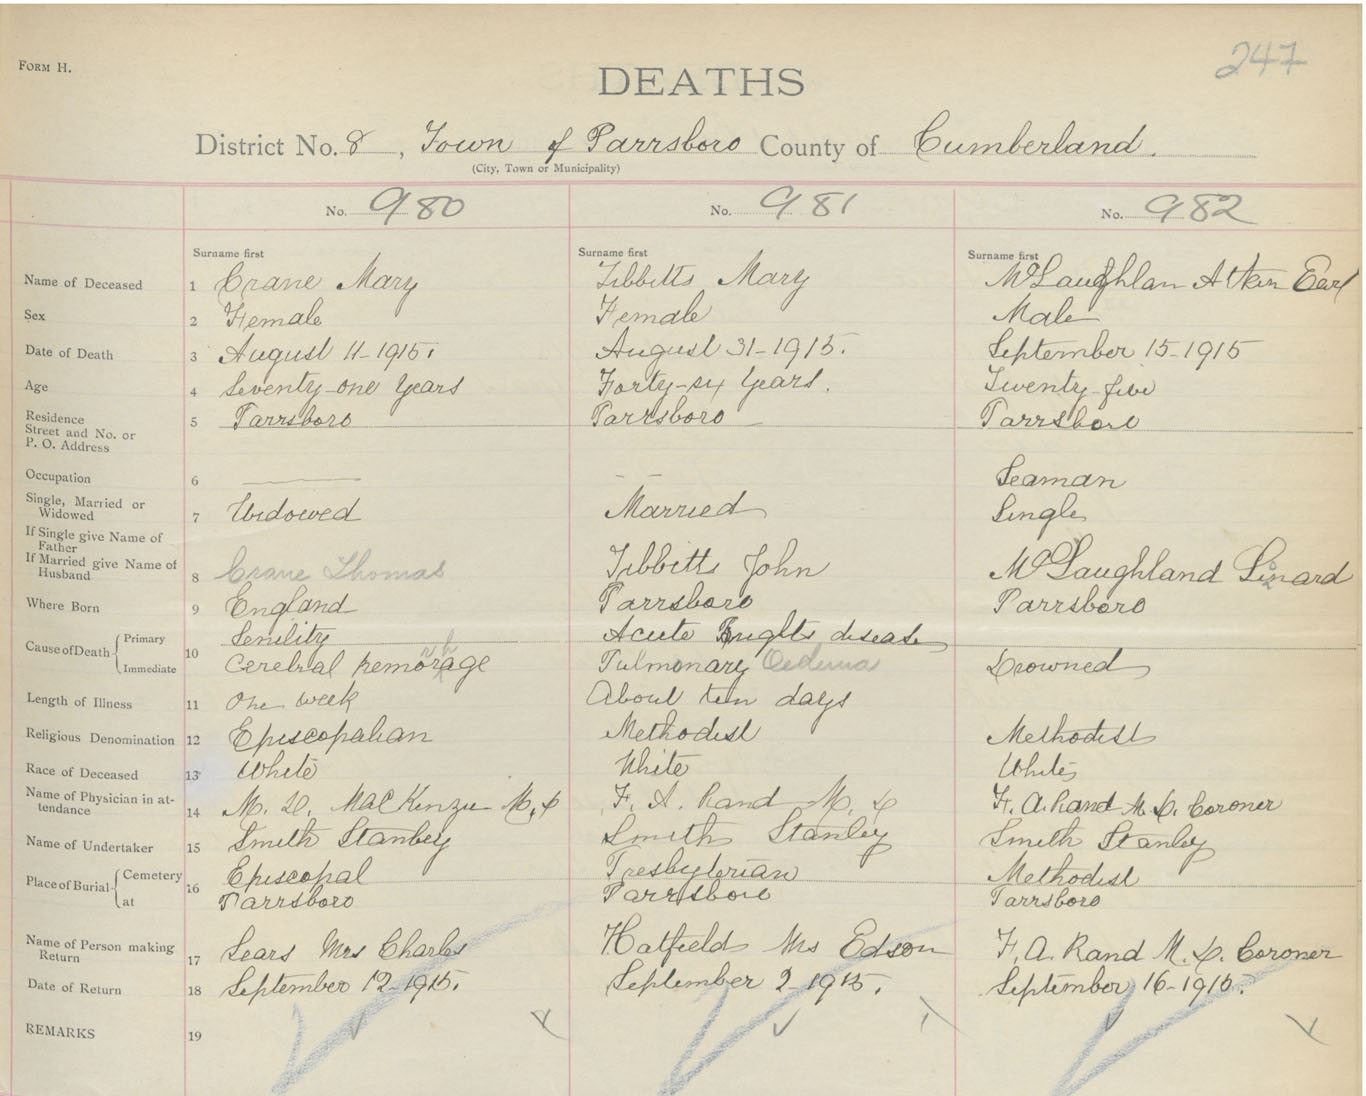 247
FORM H.
DEATHS
District No. 8, Town of Parrsboro County of Cumberland.
(City, Town or Municipality)
No. 980 No. 981 No. 982
Surname first Surname first Surname first
Name of Deceased 1 Crane Mary Tibbitts Mary McLaughlan Atken Earl
Sex 2 Female Female Male
Date of Death 3 August 11-1915. August 31-1915. September 15-1915
Age 4 Seventy-one Years Forty-six Years. Twenty-five
Residence
Street and No. or 5 Parrsboro Parrsboro Parrsboro
P. O. Address
Occupation 6 Seaman
Single, Married or
Widowed 7 Widowed Married Single
If Single give Name of
Father
If Married give Name of
Husband 8 Crane Thomas Tibbitts John McLaughland
Where Born 9 England Parrsboro Parrsboro
Cause of Death 10 Primary Senility Acute Brights disease
Immediate Cerebral hemorrhage Pulmonary Oedema Drowned
Length of Illness 11 One week About ten days
Religious Denomination 12 Episcopalian Methodist Methodist
Race of Deceased 13 White White White
Name of Physician in at-
tendance 14 M. D. MacKenzie M.D F. A. Rand M. D F. A. Rand M. D. Coroner
Name of Undertaker 15 Smith Stanley Smith Stanley Smith Stanley
Place of Burial 16 Cemetery Episcopal Presbyterian Methodist
at Parrsboro Parrsboro Parrsboro
Name of Person making
Return 17 Sears Mrs Charles Hatfield Mrs Edson F. A. Rand M. D. Coroner
Date of Return 18 September 12-1915. September 2-1915. September 16-1915.
REMARKS 19